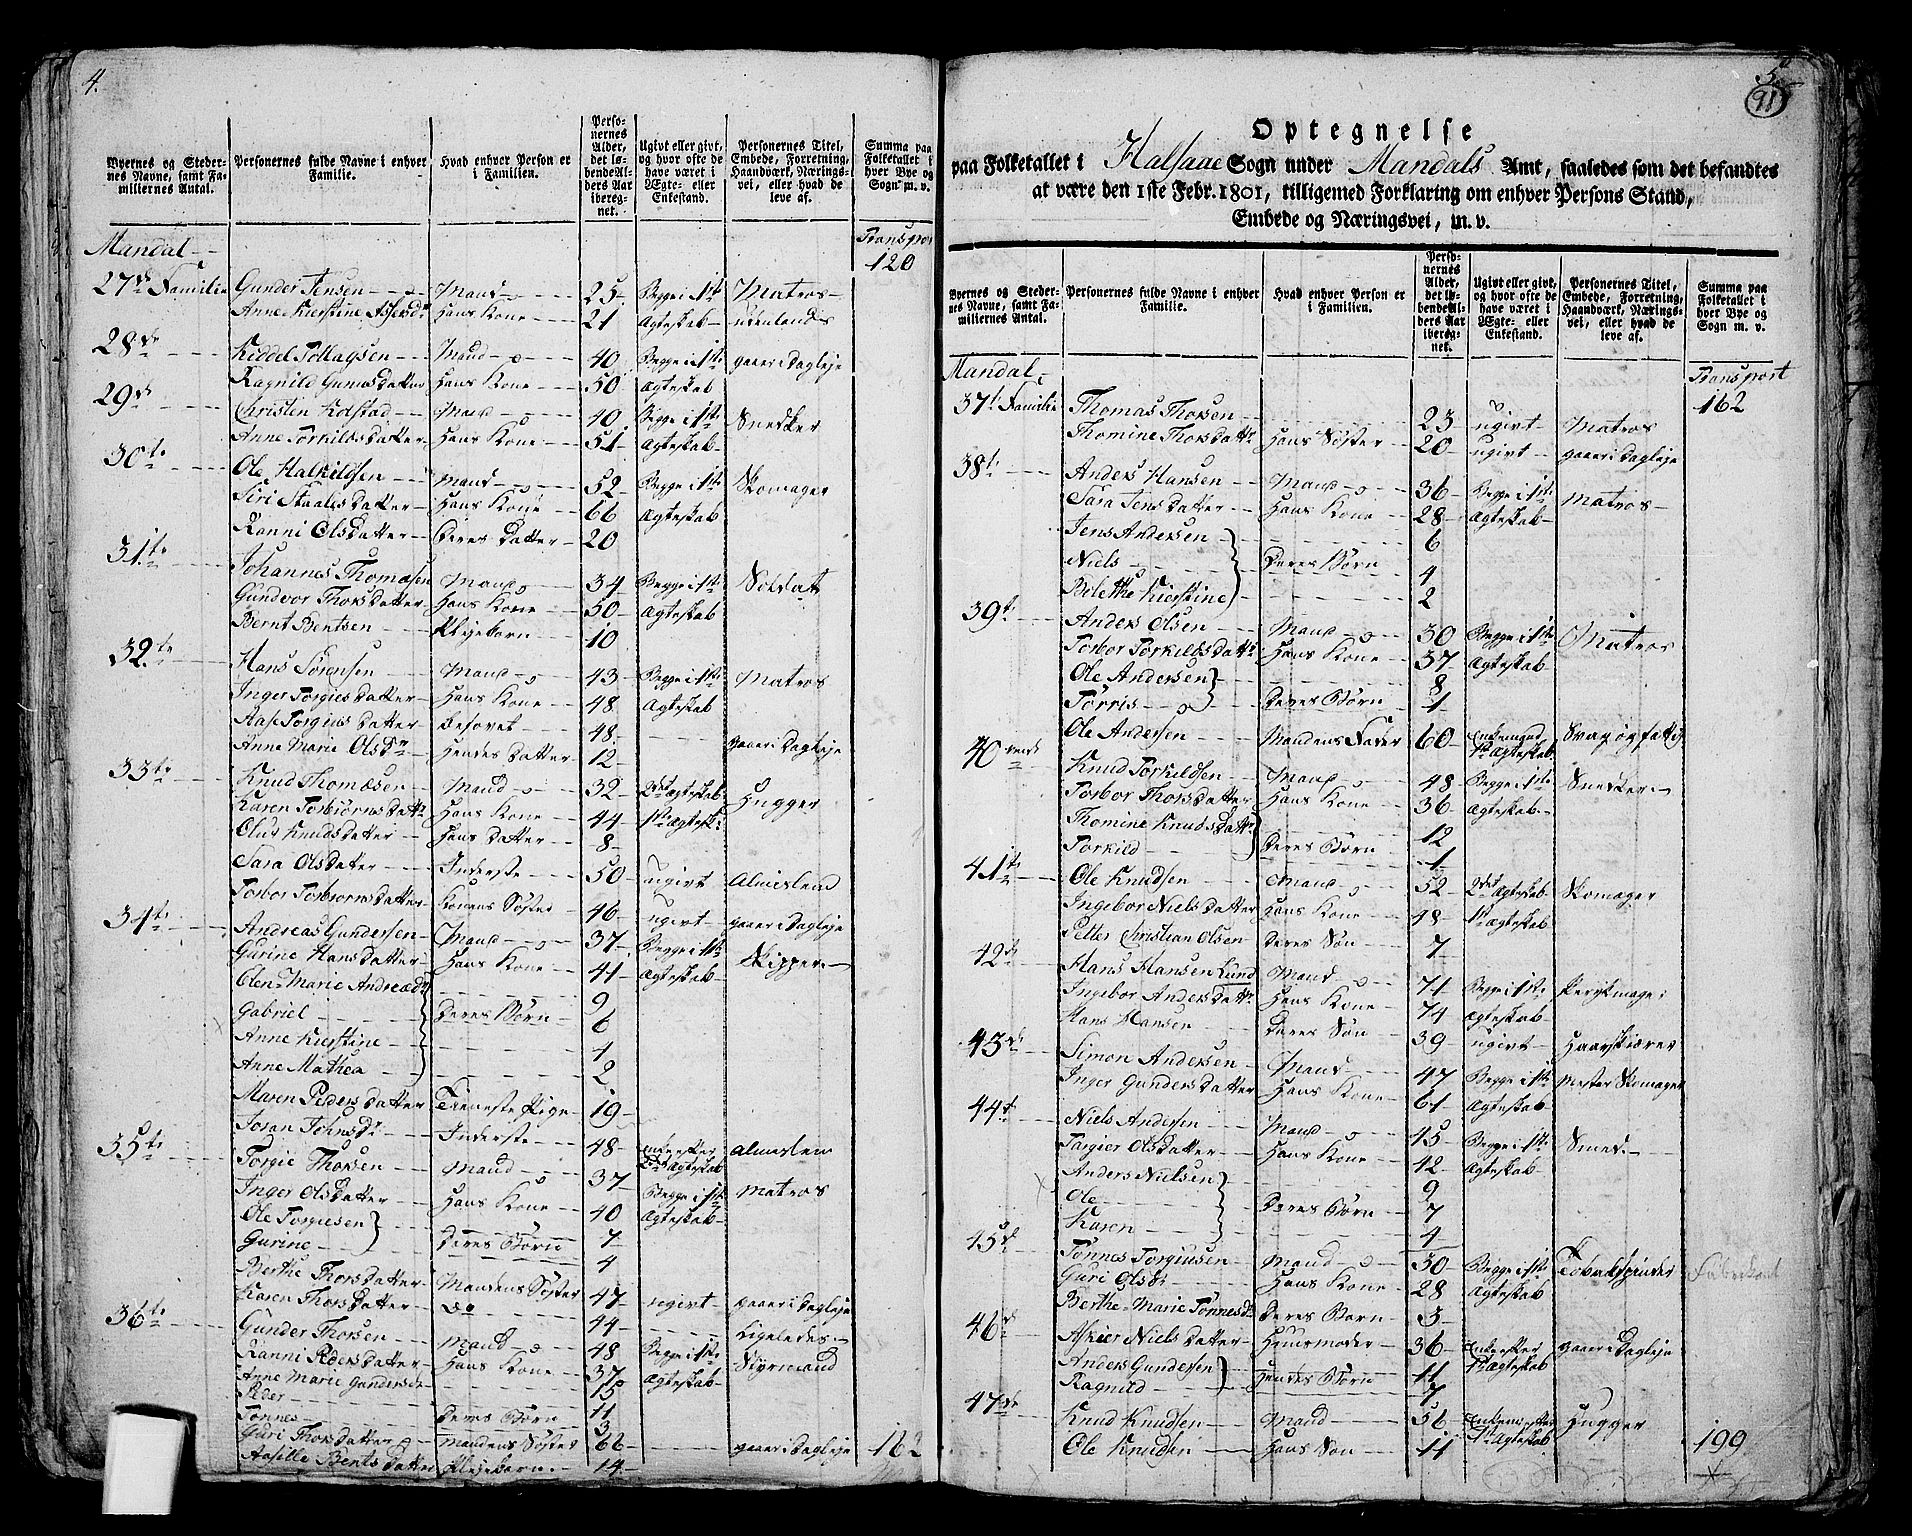 4.
Byernes og Stedernes Navne, samt Familiernes Antal.
Personernes fulde Navne i enhver Familie.
Hvad enhver Person er i Familien.
Personernes Alder, det løbende Alders Aar iberegnet.
Ugivt eller givt, og hvor ofte de have været i Ægte- eller Enkestand.
Personernes Titel, Embede, Forretning, Haandværk, Næringsvei, eller hvad de leve af.
Summa paa Folketallet i hver Bye og Sogn m. v.
Mandal
Transport 120
27de Familie Gunder Jensen Mand 25 Begge i 1ste Matros
Anne Kierstine hans Kone 21 Ægteskab udenlands
28de Keddel Tollagsen Mand 40 Begge i 1ste gaaer i Dagleje
Ragnild Gumsdatter hans Kone 50 Ægteskab
29de Christen Kolstad Mand 40 Begge i 1ste Snedker
Anne Torkildsdatter hans Kone 51 Ægteskab
30te Ole Halkildsen Mand 52 Begge i 1ste Skomager
Siri Staalesdatter hans Kone 66 Ægteskab
Ranni Olsdatter Deres Datter 20
31te Johannes Thomæsen Mand 34 Begge i 1ste Soldat
Gundvor Thorsdatter hans Kone 50 Ægteskab
Bernt Bentsen Plejebarn 10
32te Hans Sørensen Mand 43 Begge i 1ste Matros
Inger Torgiesdatter hans Kone 48 Ægteskab
Aase Torgiusdatter besovet 48
Anne Marie Olsdr hendes Datter 12 gaaer i Dagleje
33te Knud Thomæsen Mand 32 2det Ægteskab Hugger
Karen Torbiørnsdattr hans Kone 44 1ste Ægtesk:
Oluf Knudsdatter hans Datter 8
Sara Olsdatter Inderste 50 ugivt Almislem
Torbor Torbiornsdatter Konens Søster 46 ugivt gaaer i Dagleje
34te Andreas Gundersen Mand 37 Begge i 1ste Skipper
Gurine Hansdatter hans Kone 41 Ægteskab
Olen Marie Andreæd: 9
Gabriel Deres Børn 6
Anne Kierstine 4
Anne Mathea 2
Maren Pedersdatter Tieneste Pige 19
Joran Johnsdr Inderste 48 Enke efter 2det Ægteskab Almislem
35te Torgie Thorsen Mand 37 Begge i 1ste Matros
Inger Olsdatter hans Kone 40 Ægteskab
Ole Torgiesen 7
Gurine Deres Børn 4
Berthe Thorsdatter Mandens Søster 47 ugivt gaaer i Dagleje
Karen Thorsdatter do 44 Ligeledes
36te Gunder Thorsen Mand 48 Begge i 1ste Styrmand
Ranni Pedersdatter hans Kone 37 Ægteskab
Anne Marie Gundersdr 15
Peder 11
Tønnes Deres Børn 3
Guri Thorsdatter Mandens Søster 66 gaaer i Dagleje 162
Aasille Bentsdatter Plejebarn 14
5
91
Optegnelse
paa Folketallet i Halsaae Sogn under Mandals Amt, saaledes som det befandtes
at være den 1ste Febr. 1801, tilligemed Forklaring om enhver Persons Stand,
Embede og Næringsvei, m. v.
Byernes og Stedernes Navne, samt Familiernes Antal.
Personernes fulde Navne i enhver Familie.
Hvad enhver Person er i Familien.
Personernes Alder, det løbende Alders Aar iberegnet.
Ugivt eller givt, og hvor ofte de have været i Ægte- eller Enkestand.
Personernes Titel, Embede, Forretning, Haandværk, Næringsvei, eller hvad de leve af.
Summa paa Folketallet i hver Bye og Sogn m. v.
Mandal
Transport 162
37te Familie Thomas Thorsen 23 ugivt Matros
Thomine Thorsdattr hans Søster 20 ugivt gaaer i Dagleje
38te Anders Hansen Mand 36 Begge i 1ste Matros
Sara Jensdatter hans Kone 28 Ægteskab
Jens Andersen 6
Niels Deres Børn 4
Belethe Kierstine 2
39te Anders Olsen Mand 30 Begge i 1ste Matros
Torbor Torkildsdattr hans Kone 37 Ægteskab
Ole Andersen 8
Tørris Deres Børn 1
Ole Andersen Mandens Fader 60 Enkemand 1ste Ægteskab Svag og fattig
40ende Knud Torkildsen Mand 48 Begge i 1ste Snedker
Torbor Thorsdatter hans Kone 36 Ægteskab
Thomine Knudsdattr 12
Torkild Deres Børn 1
41te Ole Knudsen Mand 52 2det Ægteskab Skomager
Ingebor Nielsdatter hans Kone 48 1ste Ægteskab
Petter Christian Olsen Deres Søn 7
42de Hans Hansen Lund Mand 71 Begge i 1ste Perykmager
Ingebor Andersdattr hans Kone 74 Ægteskab
Hans Hansen Deres Søn 39 ugivt Haarskiærer
43de Simon Andersen Mand 47 Begge i 1ste Mester Skomager
Inger Gundersdatter hans Kone 61 Ægteskab
44te Niels Andersen Mand 45 Begge i 1ste Smed
Targier Olsdatter hans Kone 42 Ægteskab
Anders Nielsen 9
Ole Deres Børn 7
Karen 4
45de Tønnes Torgiusen Mand 30 Begge i 1ste Tobakspinder
Guri Olsdr hans Kone 28 Ægteskab
Berthe Marie Tønnesdr Deres Barn 3
46de Askier Nielsdatter Huusmoder 36 Enke efter 1ste Ægteskab gaaer i Dagleje
Anders Gundersen 11
Ragnild hendes Børn 7
47de Knud Knudsen Mand 56 Enkem: efter 1ste Ægteskab Hugger
Ole Knudsen hans Søn 11 199